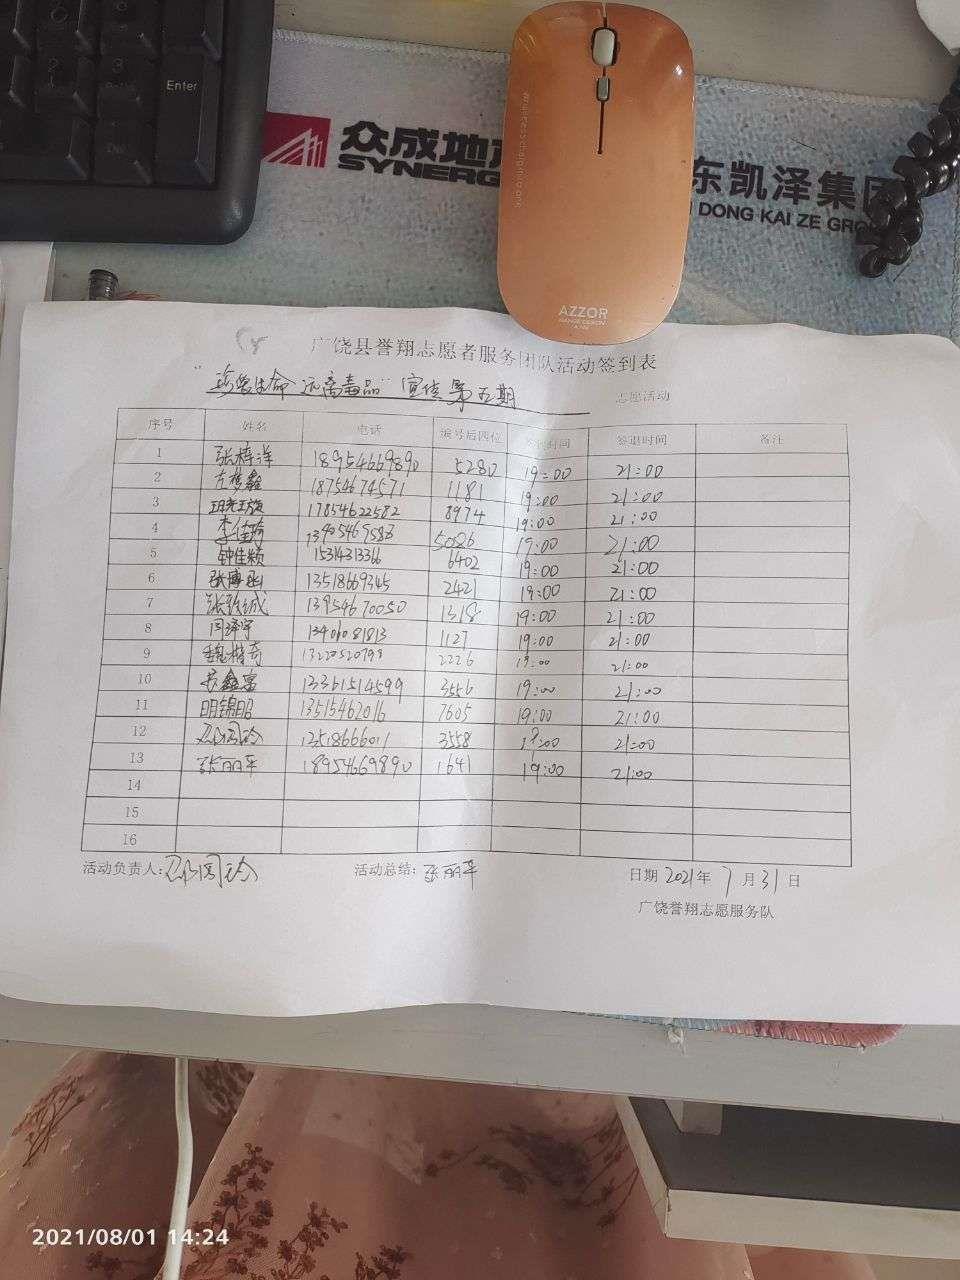 Enter
众成地
SYNERG
东凯泽集团
DONG KAI ZE GRO
AZZOR
广饶县誉翔志愿者服务团队活动签到表
"珍爱生命 远离毒品" 宣传 第五期 志愿活动
序号 姓名 电话 编号后四位 签到时间 签退时间 备注
1 张梓洋 18954669890 5280 19:00 21:00
2 18754674571 1181 19:00 21:00
3 17854622582 8974 19:00 21:00
4 李佳琦 5086 19:00 21:00
5 钟佳颖 15314313366 6402 19:00 21:00
6 张博涵 13518669345 2421 19:00 21:00
7 张致诚 13954670050 1318 19:00 21:00
8 周泽宇 1127 19:00 21:00
9 魏楷奇 2226 19:00 21:00
10 13361514599 3556 19:00 21:00
11 明锦昭 13515462016 7605 19:00 21:00
12 3558 19:00 21:00
13 张丽平 18954669890 1641 19:00 21:00
14
15
16
活动负责人: 活动总结: 张丽平 日期 2021年 7月31日
广饶誉翔志愿服务队
2021/08/01 14:24